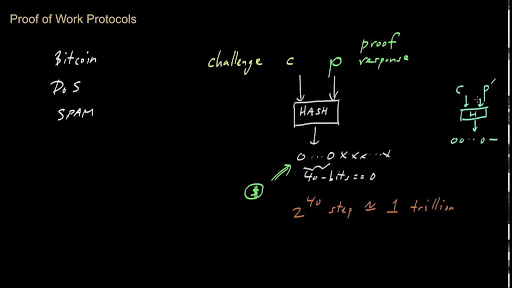 Proof of Work Protocols
Bitcoin
DoS
SPAM
challenge c p proof
response
HASH
0....0xxx...x
40-bits==0
2^40 step ≈ 1 trillion
c p'
H
00...0-